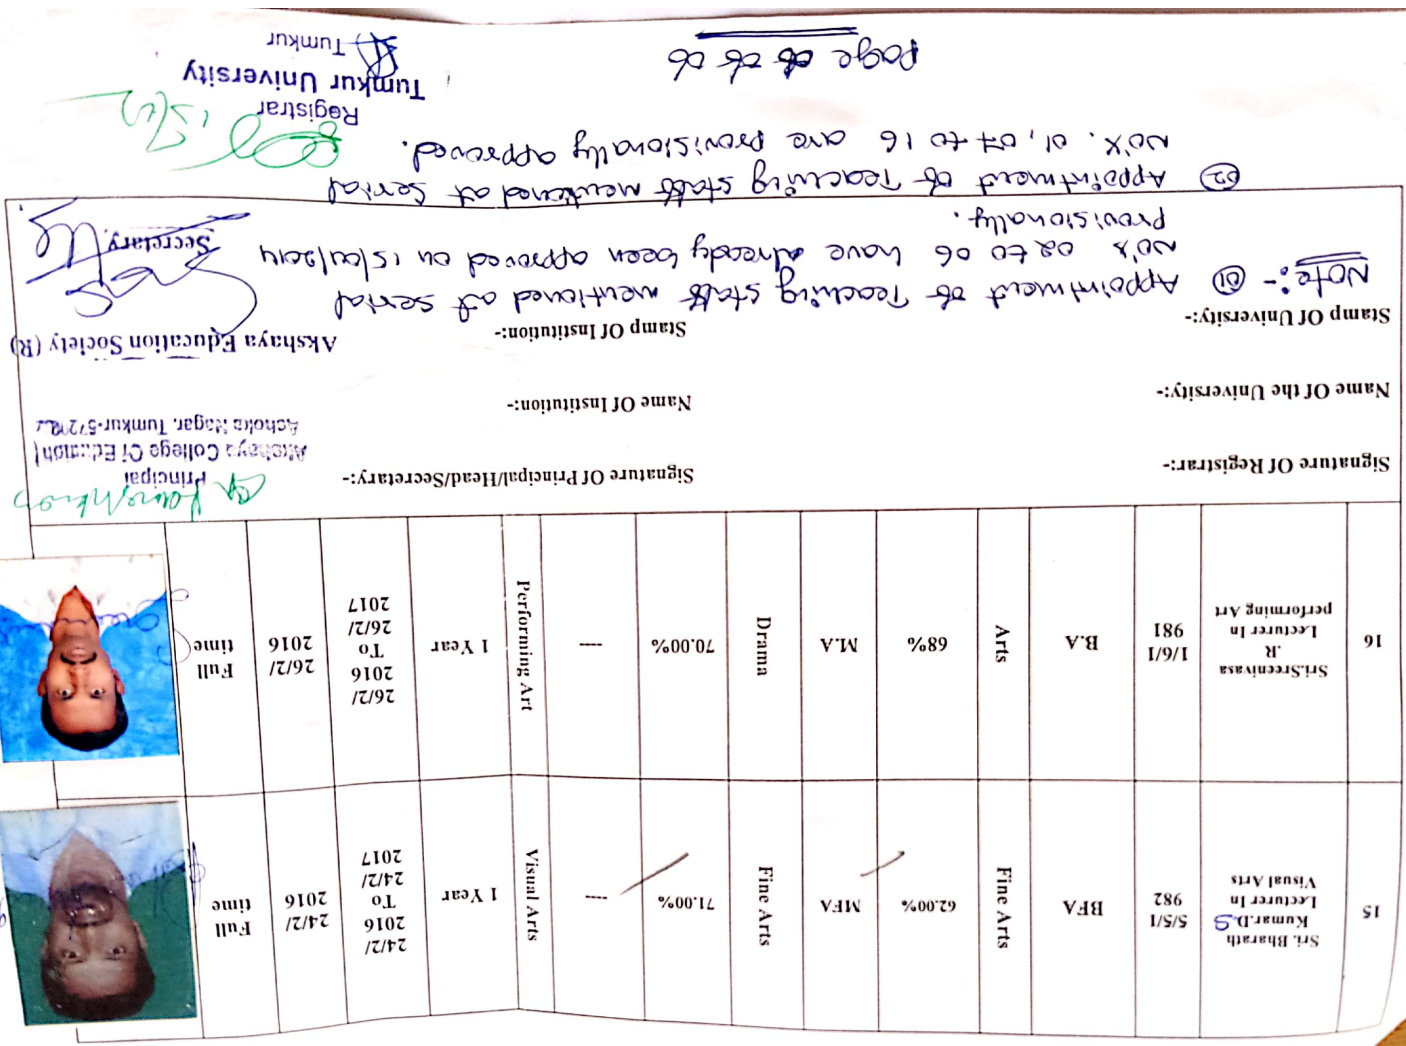 15
Sri. Bharath
Kumar.D.S
Lecturer In
Visual Arts
5/5/1
982
BFA
Fine Arts
62.00%
MFA
Fine Arts
71.00%
---
Visual Arts
1 Year
24/2/
2016
To
24/2/
2017
24/2/
2016
Full
time
16
Sri.Sreenivasa
.R
Lecturer In
performing Art
1/6/1
981
B.A
Arts
68%
M.A
Drama
70.00%
---
Performing Art
1 Year
26/2/
2016
To
26/2/
2017
26/2/
2016
Full
time
Signature Of Registrar:-
Signature Of Principal/Head/Secretary:-
Principal
Akshaya College Of Education
Ashoka Nagar, Tumkur-572
Name Of the University:-
Name Of Institution:-
Stamp Of University:-
Stamp Of Institution:-
Akshaya Education Society (R)
Secretary.
Note:- 01 Appointment of Teaching staff mentioned at serial
No's 02 to 06 have already been approved on
provisionally.
02 Appointment of Teaching staff mentioned at serial
No's. 01, 07 to 16 are provisionally approved.
Registrar
Tumkur University
Tumkur
Page 06 of 06